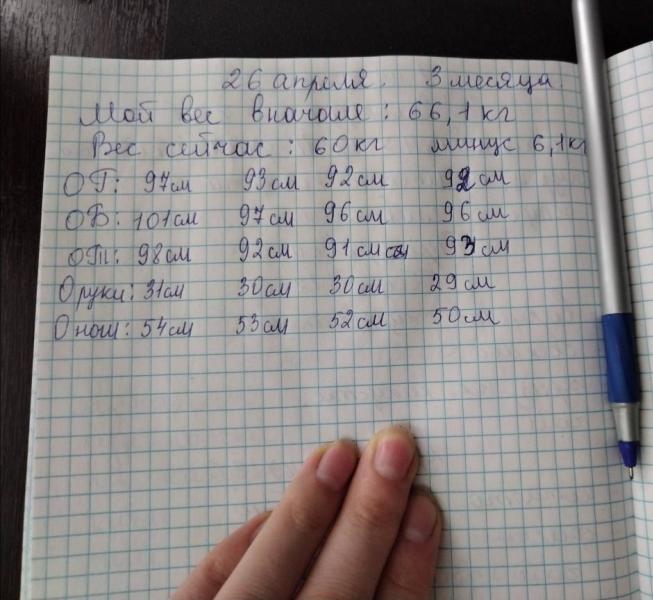 26 апреля. 3 месяца.
Мой вес вначале: 66,1 кг
Вес сейчас: 60кг минус 6,1кг
ОГ: 97см 93см 92см 92см
ОБ: 101см 97см 96см 96см
ОТ: 98см 92см 91см 93см
О руки: 31см 30см 30см 29см
О ноги: 54см 53см 52см 50см